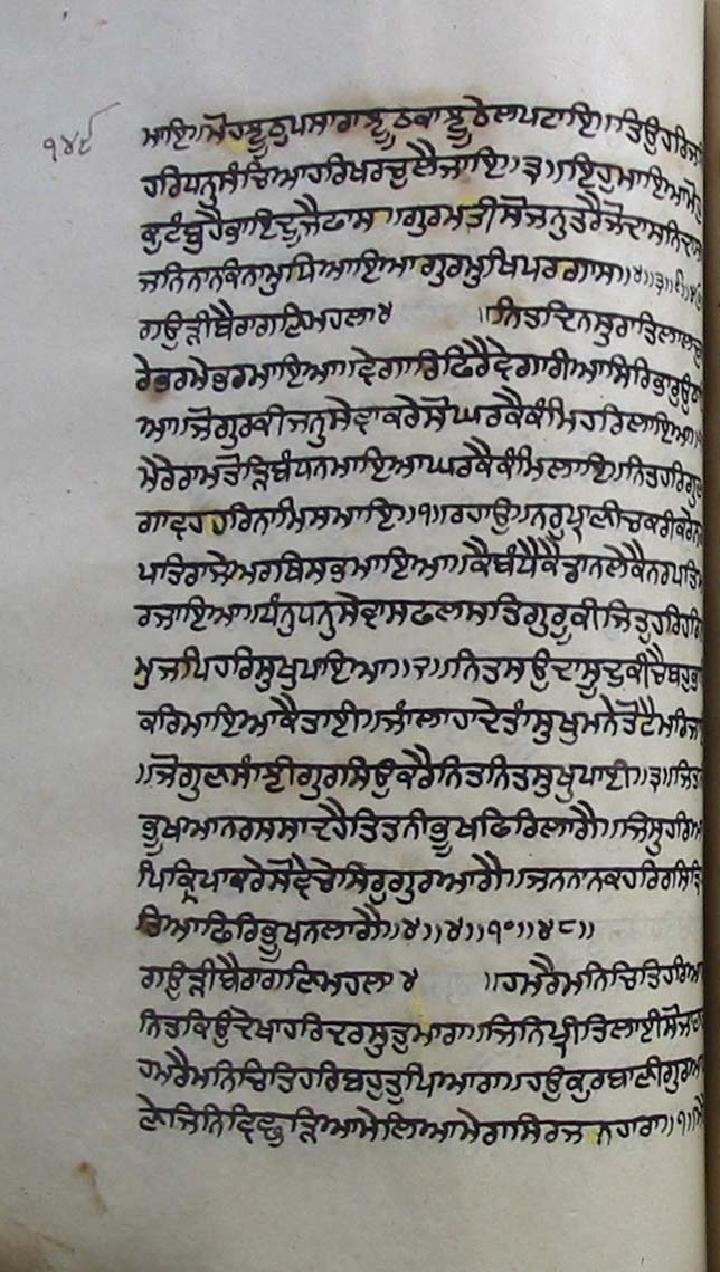 ੧੪੮
ਮਾਇਆਮੋਹਝੂਠੁਪਸਾਰਾਝੂਠਕਾਝੂਠੇਲਪਟਾਇ॥ਤਿਉਹਰਿਜ
ਹਰਿਧਨੁਸੰਚਿਆਹਰਿਖਰਚੁਲੈਜਾਇ॥੩॥ਇਹੁਮਾਇਆਮੋ
ਕੁਟੰਬੁਹੈਭਾਇਦੂਜੈਫਾਸ॥ਗੁਰਮਤੀਸੋਜਨੁਤਰੈਜੋਦਾਸਨਿਦਾਸ
ਜਨਿਨਾਨਕਿਨਾਮੁਧਿਆਇਆਗੁਰਮੁਖਿਪਰਗਾਸ॥੪॥੩॥੯॥
ਗਉੜੀਬੈਰਾਗਣਿਮਹਲਾ੪ ॥ਨਿਤਦਿਨਸੁਰਾਤਿਲਾਲਚੁ
ਰੇਭਰਮੇਭਰਮਾਇਆ॥ਵੇਗਾਰਿਫਿਰੈਵੇਗਾਰੀਆਸਿਰਿਭਾਰੁਉਠਾ
ਆ॥ਜੋਗੁਰਕੀਜਨੁਸੇਵਾਕਰੇਸੋਘਰਕੈਕੰਮਿਹਰਿਲਾਇਆ॥੧
ਮੇਰੇਰਾਮਤੋੜਿਬੰਧਨਮਾਇਆਘਰਕੈਕੰਮਿਲਾਇ॥ਨਿਤਹਰਿਗੁਣ
ਗਾਵਹਹਰਿਨਾਮਿਸਮਾਇ॥੧॥ਰਹਾਉ॥ਨਰੁਪ੍ਰਾਣੀਚਾਕਰੀਕਰੇਨਰ
ਪਤਿਰਾਜੇਅਰਥਿਸਭਮਾਇਆ॥ਕੈਬੰਧੈਕੈਡਾਨਲੇਕੈਨਰਪਤਿਮ
ਰਜਾਇਆ॥ਧੰਨੁਧਨੁਸੇਵਾਸਫਲਸਤਿਗੁਰੂਕੀਜਿਤੁਹਰਿਹਰਿ
ਮੁਜਪਿਹਰਿਸੁਖੁਪਾਇਆ॥੨॥ਨਿਤਸਉਦਾਸੂਦੁਕੀਚੈਬਹੁਭਾ
ਕਰਿਮਾਇਆਕੈਤਾਈ॥ਜਾਂਲਾਹਾਦੇਤਾਂਸੁਖੁਮਨੇਤੋਟੈਮਰਿਜਾ
॥ਜੋਗੁਣਸਾਂਝੀਗੁਰਸਿਉਕਰੈਨਿਤਨਿਤਸੁਖੁਪਾਈ॥੩॥ਜਿਤ
ਭੂਖਆਨਰਸਸਾਦਹੈਤਿਤਨੀਭੂਖਫਿਰਿਲਾਗੈ॥ਜਿਸੁਹਰਿਆ
ਪਿਕ੍ਰਿਪਾਕਰੇਸੋਵੇਚੇਸਿਰੁਗੁਰਆਗੈ॥ਜਨਨਾਨਕਹਰਿਰਸਿਤ੍ਰਿ
ਤਿਆਫਿਰਿਭੂਖਨਲਾਗੈ॥੪॥੪॥੧੦॥੪੮॥
ਗਉੜੀਬੈਰਾਗਣਿਮਹਲਾ੪ ॥ਹਮਰੈਮਨਿਚਿਤਿਹਰਿਆ
ਨਿਤਕਿਉਦੇਖਾਹਰਿਦਰਸੁਤੁਮਾਰਾ॥ਜਿਨਿਪ੍ਰੀਤਿਲਾਈਸੋਜਾਣ
ਹਮਰੈਮਨਿਚਿਤਿਹਰਿਬਹੁਤੁਪਿਆਰਾ॥ਹਉਕੁਰਬਾਣੀਗੁਰਆ
ਣੇਜਿਨਿਵਿਛੁੜਿਆਮੇਲਿਆਮੇਰਾਸਿਰਜਨਹਾਰਾ॥੧॥ਮੇ